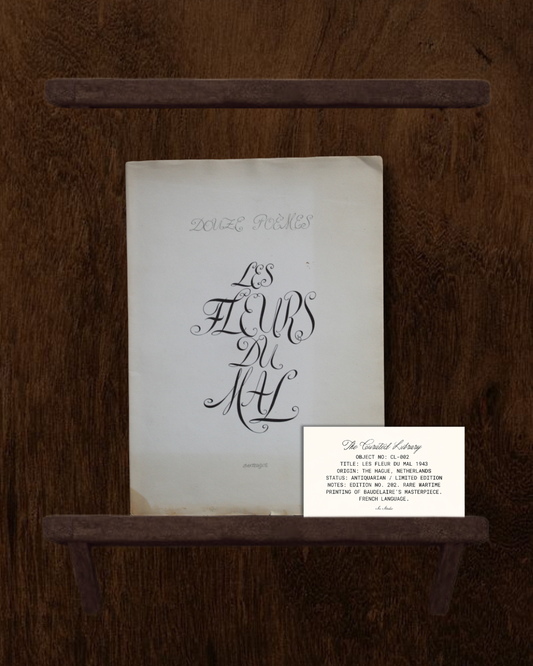 DOUZE POÈMES
LES
FLEURS
DU
MAL
The Curated Library
OBJECT NO: CL-002
TITLE: LES FLEUR DU MAL 1943
ORIGIN: THE HAGUE, NETHERLANDS
STATUS: ANTIQUARIAN / LIMITED EDITION
NOTES: EDITION NO. 202. RARE WARTIME
PRINTING OF BAUDELAIRE'S MASTERPIECE.
FRENCH LANGUAGE.